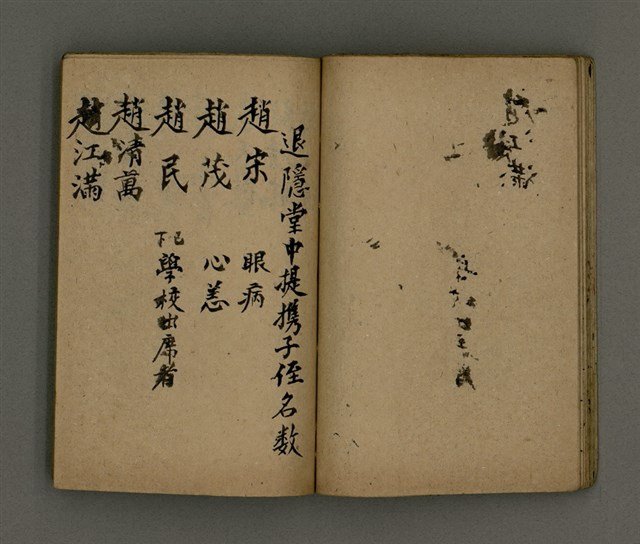 退隱堂中提携子侄名数
趙宋 眼病
趙茂 心恙
趙民
下記 學校出席者
趙清萬
趙江滿